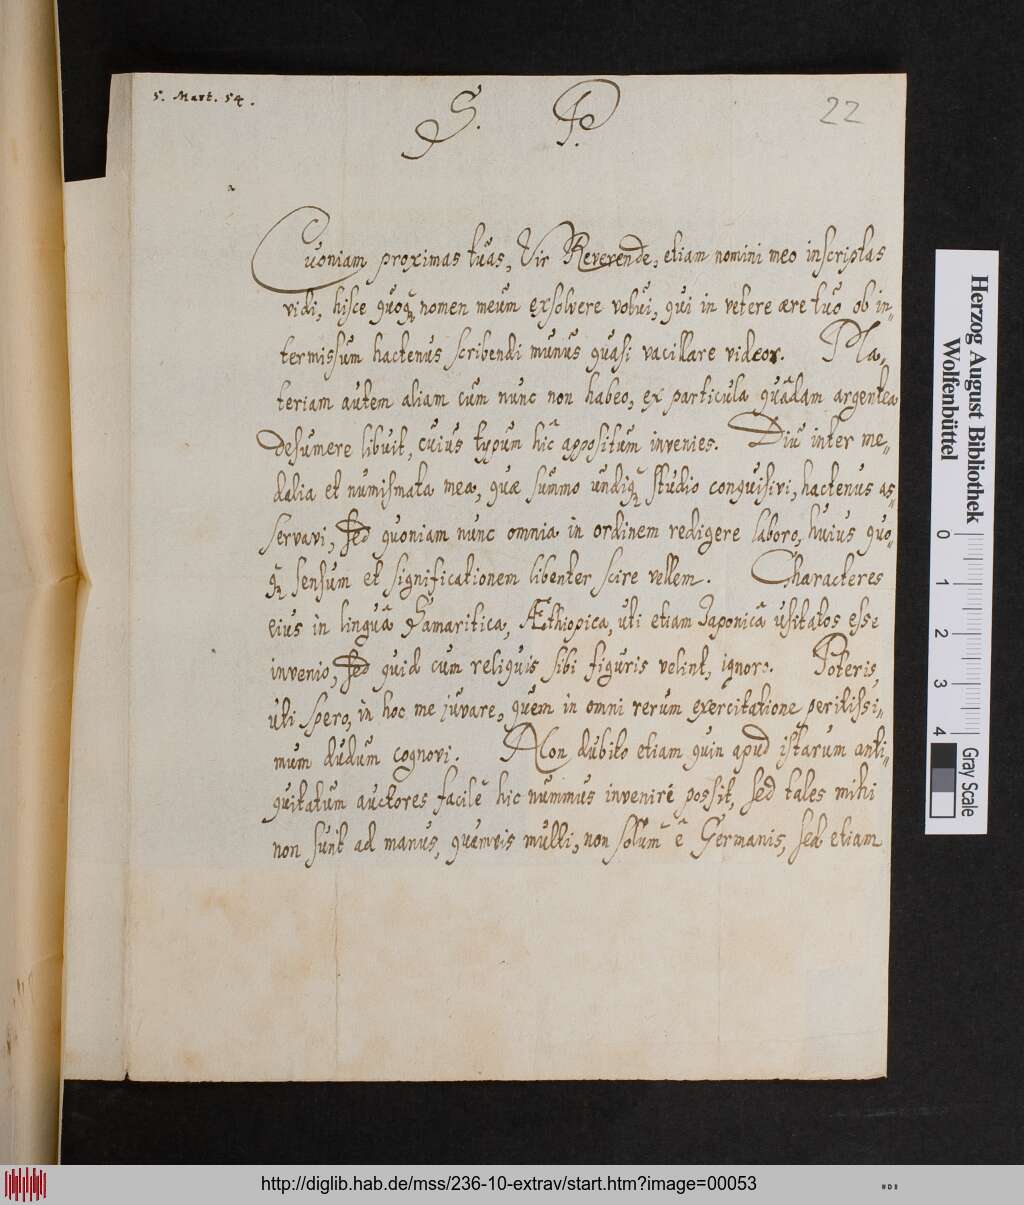 5. Mart. 54.
S. P.
22
Quoniam proximas tuas, Vir Reverende, etiam nomini meo inscriptas
vidi, hisce quoq; nomen meum exsolvere volui, qui in vetere ære tuo ob in-
termissum hactenus scribendi munus quasi vacillare videor. Ma-
teriam autem aliam cum nunc non habeo, ex particula quâdam argentea
desumere libuit, cuius typum hîc appositum invenies. Diu inter me-
dalia et numismata mea, quæ summo undiq; studio conquisivi, hactenus as-
servavi, sed quoniam nunc omnia in ordinem redigere laboro, huius quo-
q; sensum et significationem libenter scire vellem. Characteres
eius in linguâ Damaritica, Æthiopica, uti etiam Japonicâ usitatos esse
invenio, sed quid cum reliquis sibi figuris velint, ignoro. Poteris,
uti spero, in hoc me juvare, quem in omni rerum exercitatione peritissi-
mum dudum cognovi. Non dubito etiam quin apud istarum anti-
quitatum auctores facilè hic nummus inveniri possit, sed tales mihi
non sunt ad manus, quamvis multi, non solum è Germanis, sed etiam
Herzog August Bibliothek
Wolfenbüttel
0 1 2 3 4
Gray Scale
http://diglib.hab.de/mss/236-10-extrav/start.htm?image=00053